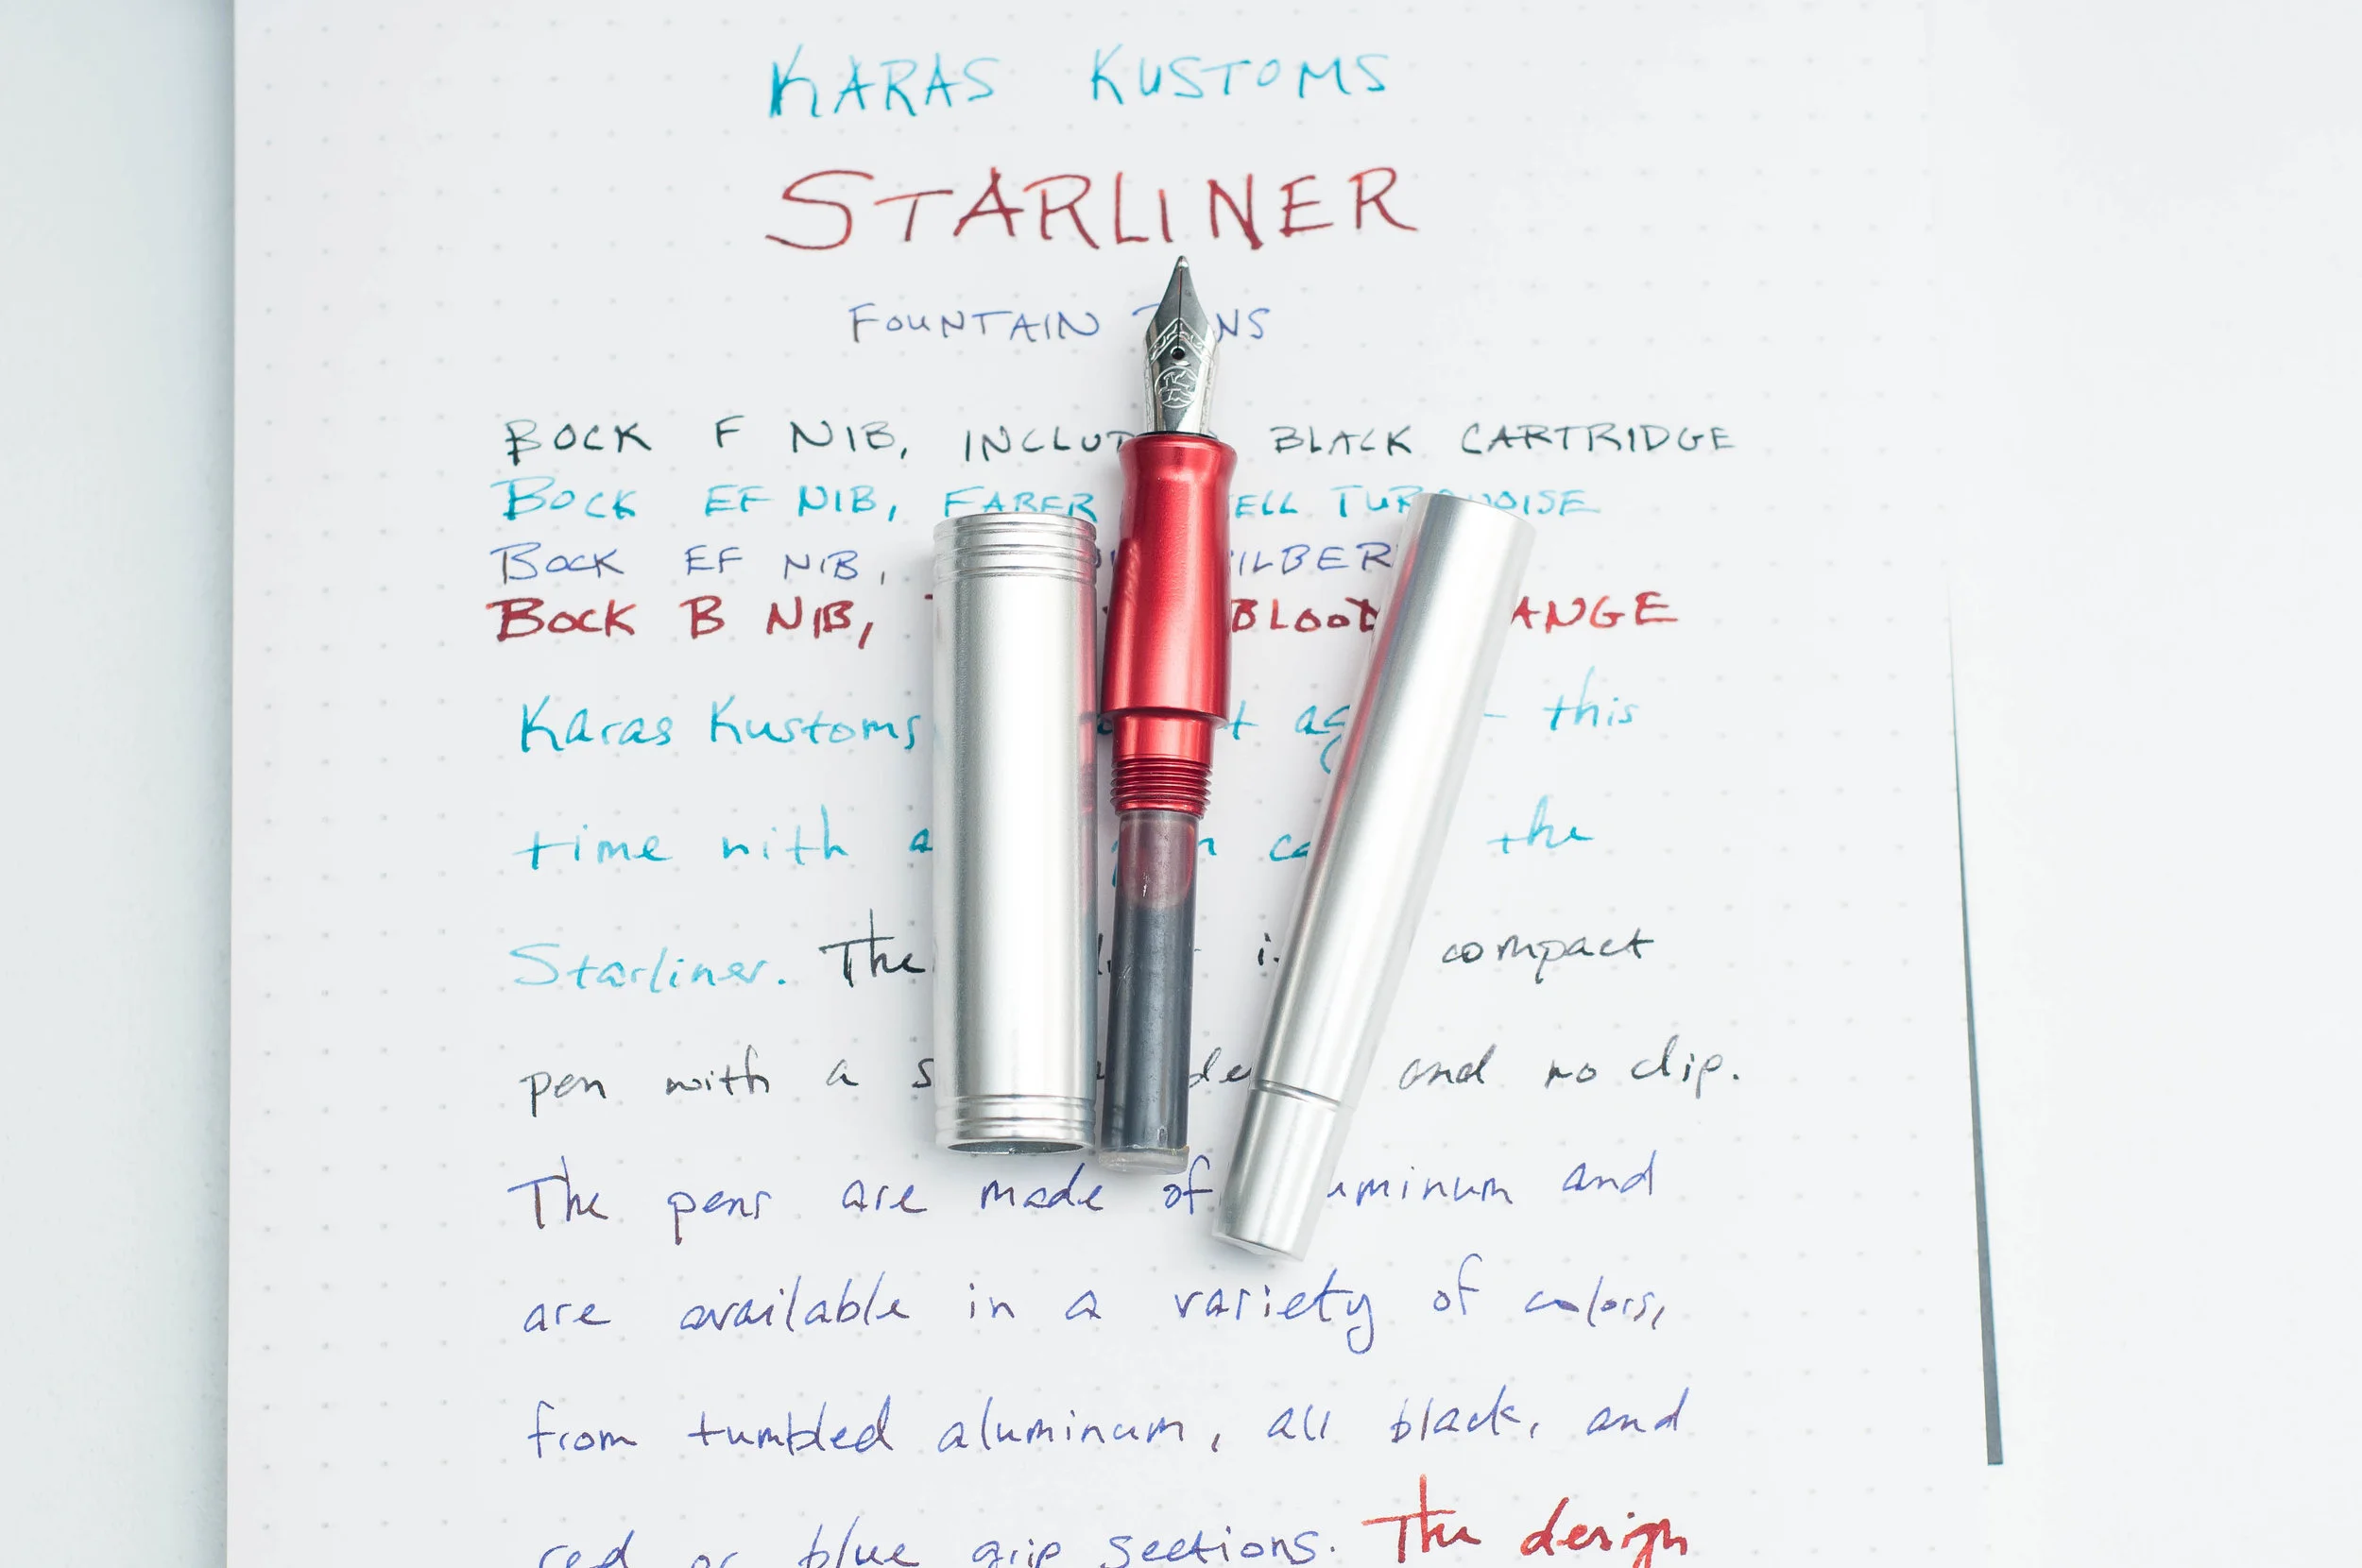 KARAS KUSTOMS
STARLINER
FOUNTAIN
BOCK F NIB, BLACK CARTRIDGE
BOCK EF NIB, FABER TURQUOISE
BOCK EF NIB,
BOCK B NIB, BLOOD
Karas Kustoms this
time with a the
Starliner. The compact
pen with a and no clip.
The pens are made of and
are available in a variety of colors,
from tumbled aluminum, all black, and
red or blue grip sections. The design